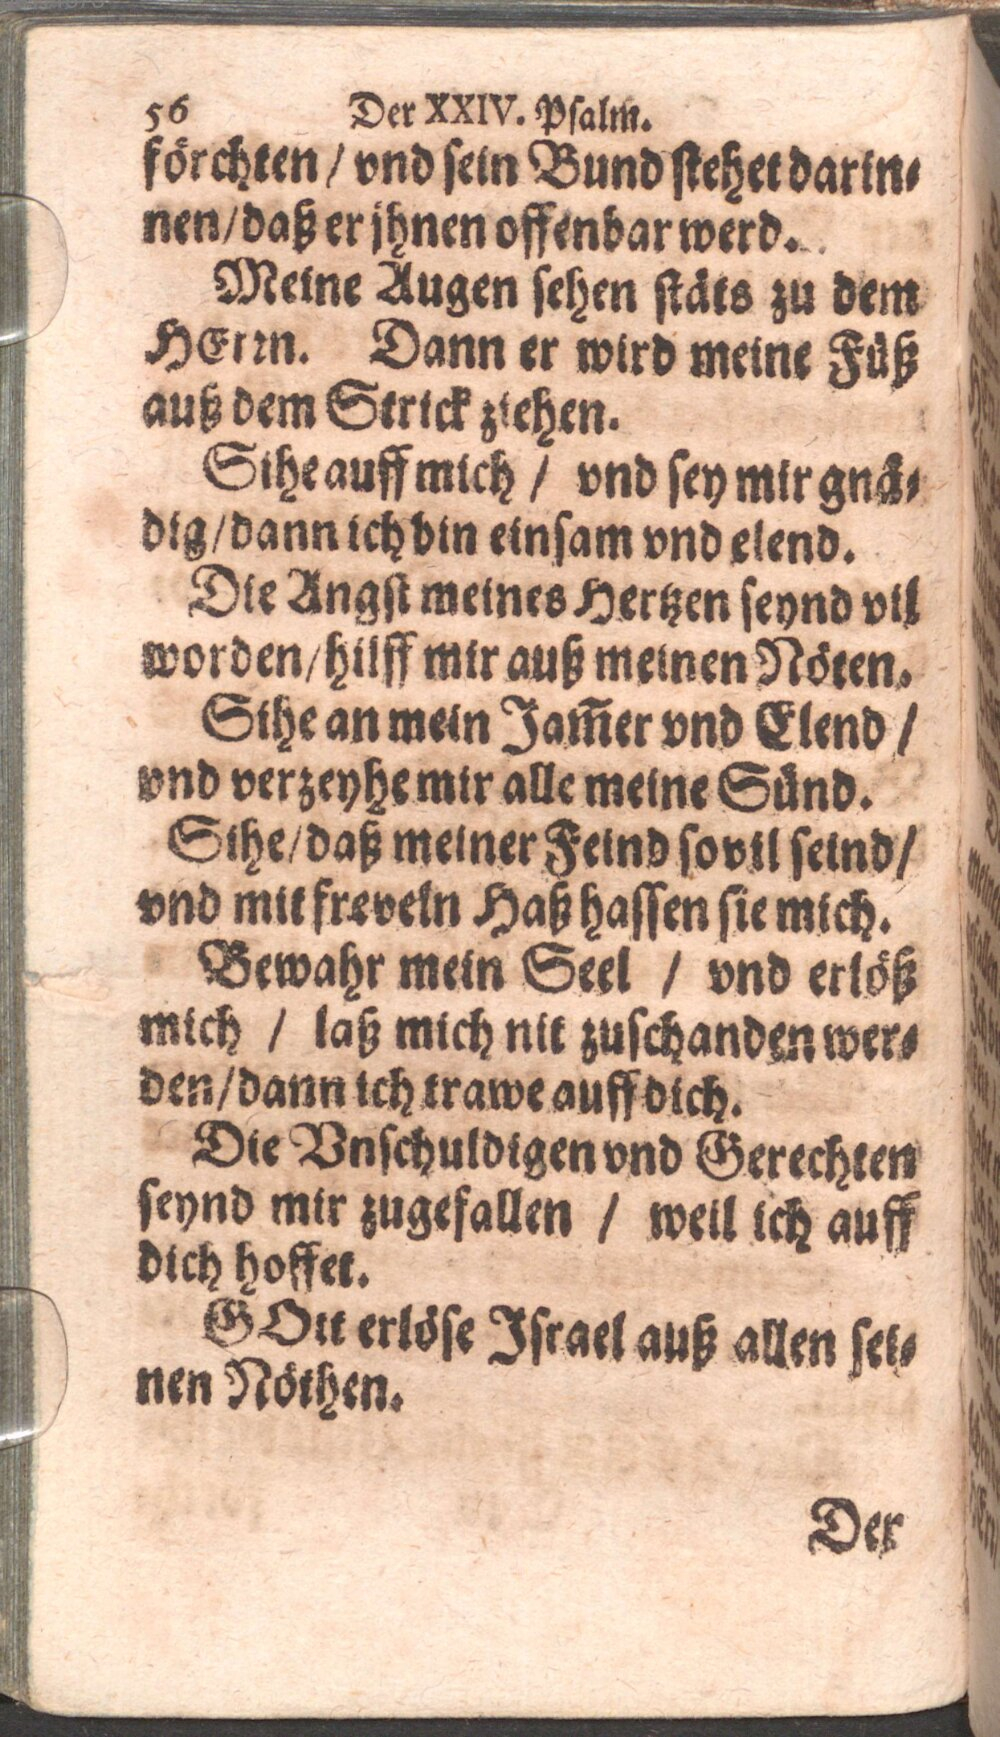 56 Der XXIV. Psalm.
förchten / vnd sein Bund stehet darin-
nen / daß er jhnen offenbar werd.
Meine Augen sehen stäts zu dem
HErrn. Dann er wird meine Füß
auß dem Strick ziehen.
Sihe auff mich / vnd sey mir gnä-
dig / dann ich bin einsam vnd elend.
Die Angst meines Hertzen seynd vil
worden / hilff mir auß meinen Nöten.
Sihe an mein Jam̃er vnd Elend /
vnd verzeyhe mir alle meine Sünd.
Sihe / daß meiner Feind sovil seind /
vnd mit freveln Haß hassen sie mich.
Bewahr mein Seel / vnd erlöß
mich / laß mich nit zuschanden wer-
den / dann ich trawe auff dich.
Die Vnschuldigen vnd Gerechten
seynd mir zugefallen / weil ich auff
dich hoffet.
GOtt erlöse Israel auß allen sei-
nen Nöthen.
Der